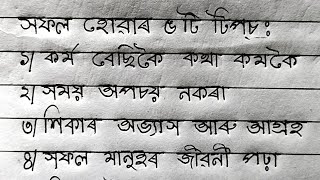 সফল হোৱাৰ ৫ টি টিপচ্:
১) কৰ্ম বেছিকৈ কথা কমকৈ
২) সময় অপচয় নকৰা
৩) শিকাৰ অভ্যাস আৰু আগ্ৰহ
৪) সফল মানুহৰ জীৱনী পঢ়া